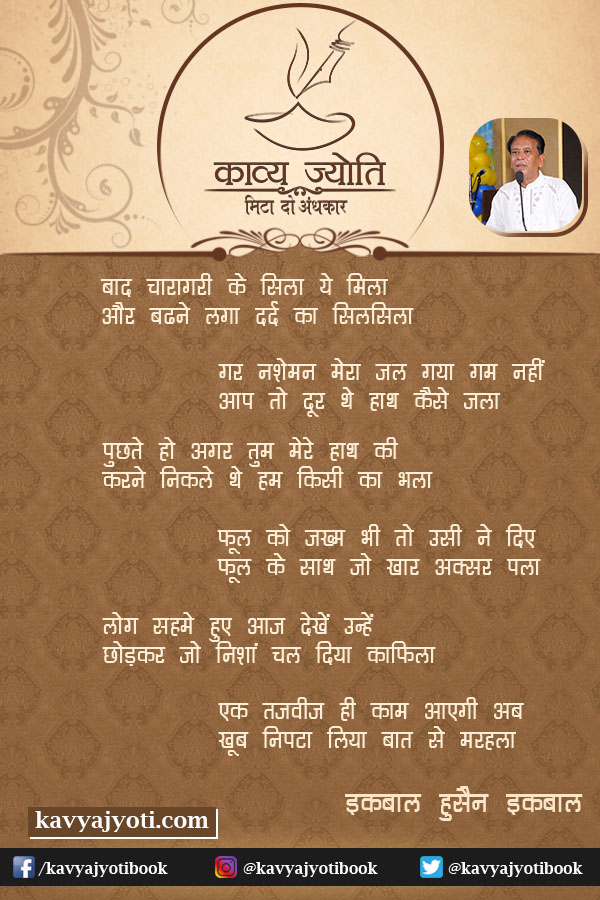 काव्य ज्योति
मिटा दो अंधकार
बाद चारागरी के सिला ये मिला
और बढने लगा दर्द का सिलसिला
गर नशेमन मेरा जल गया गम नहीं
आप तो दूर थे हाथ कैसे जला
पुछते हो अगर तुम मेरे हाथ की
करने निकले थे हम किसी का भला
फूल को जख्म भी तो उसी ने दिए
फूल के साथ जो खार अक्सर पला
लोग सहमे हुए आज देखें उन्हें
छोड़कर जो निशां चल दिया काफिला
एक तजवीज ही काम आएगी अब
खूब निपटा लिया बात से मरहला
इकबाल हुसैन इकबाल
kavyajyoti.com
/kavyajyotibook @kavyajyotibook @kavyajyotibook